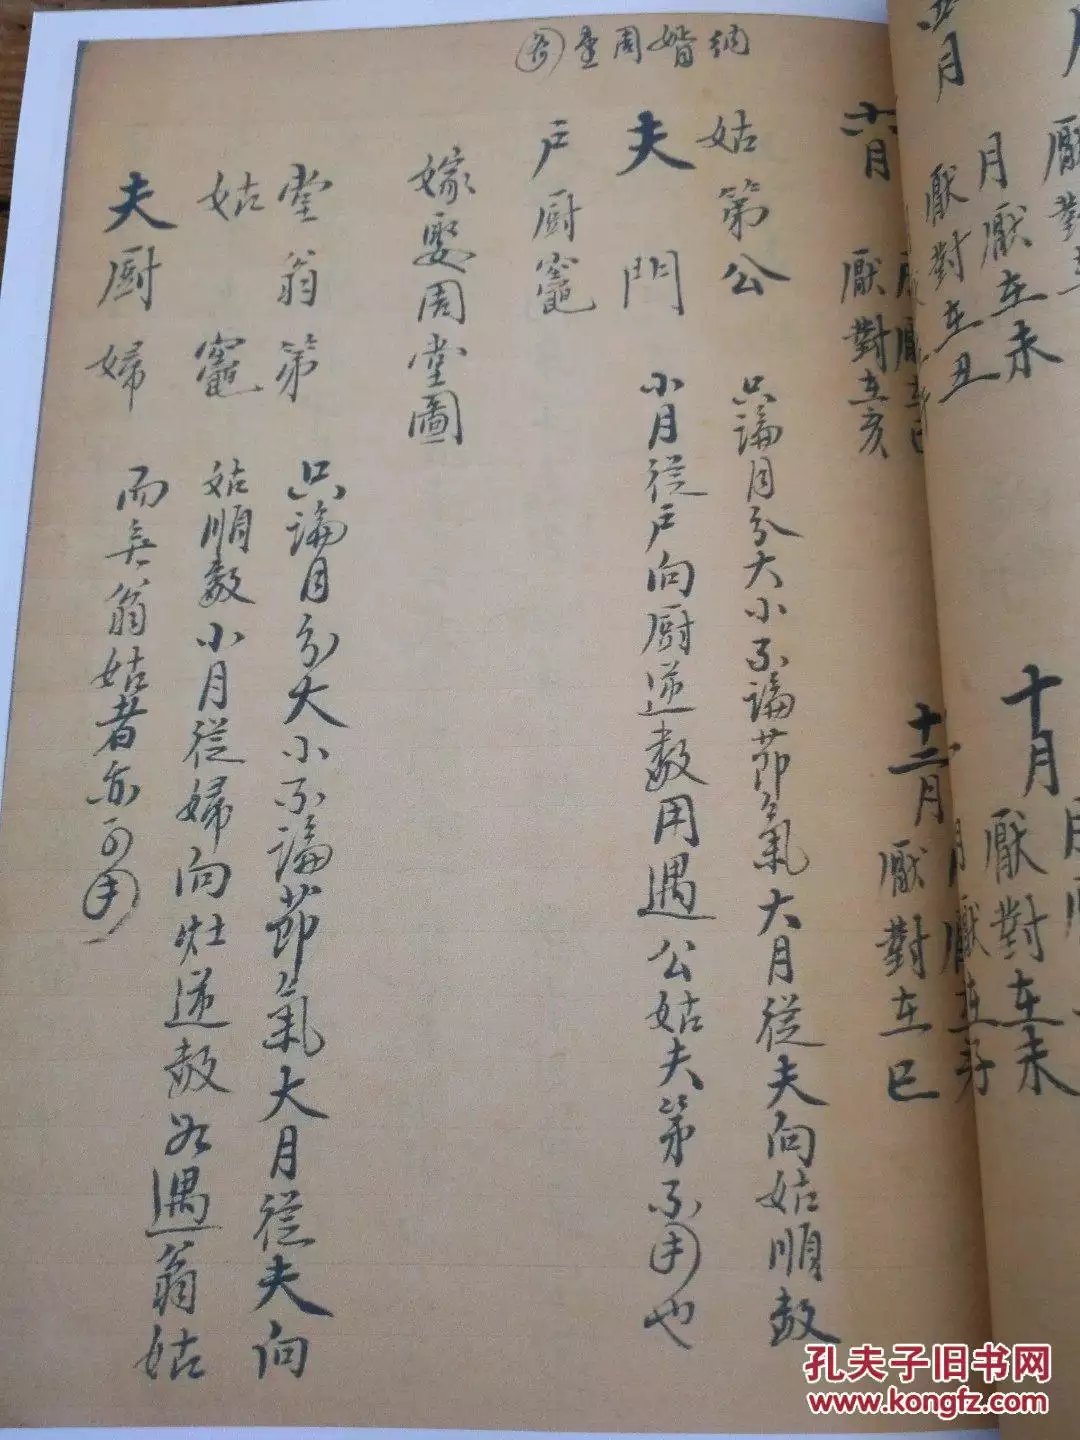 五月
月厭在未
厭對在丑
十月
厭對在未
六月
厭對在亥
十二月
厭對在巳
納婿周堂圖
姑第公
夫門
戶厨竈
只論月分大小不論節氣大月從夫向姑順數
小月從戶向厨逆數用遇公姑夫第不用也
嫁娶周堂圖
堂翁第
姑竈
夫厨婦
只論月分大小不論節氣大月從夫向
姑順數小月從婦向灶逆數如遇翁姑
而無翁姑者亦可用
孔夫子旧书网
www.kongfz.com